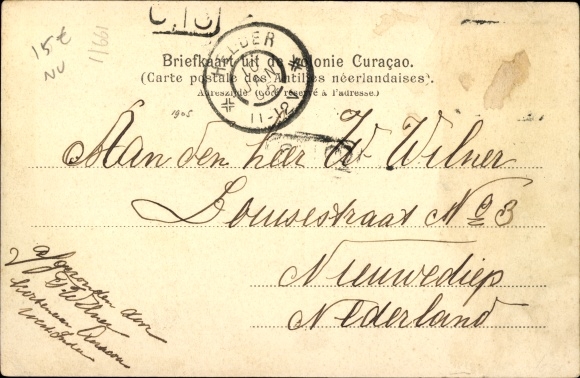 15 €
NU
11661
Briefkaart uit de kolonie Curaçao.
(Carte postale des Antilles néerlandaises).
Adreszijde (Côté réservé à l'adresse.)
HELDER
1905
Aan den heer W Wilner
Louisestraat No 3
Nieuwediep
Nederland
afgezonden door
Wilner
Curacao